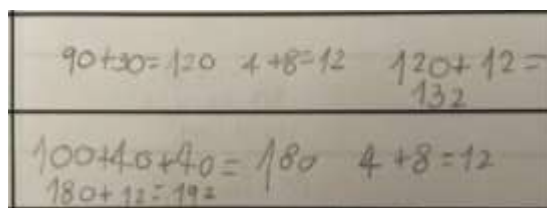 90+30=120 4+8=12 120+12=
132
100+40+40=180 4+8=12
180+12=192